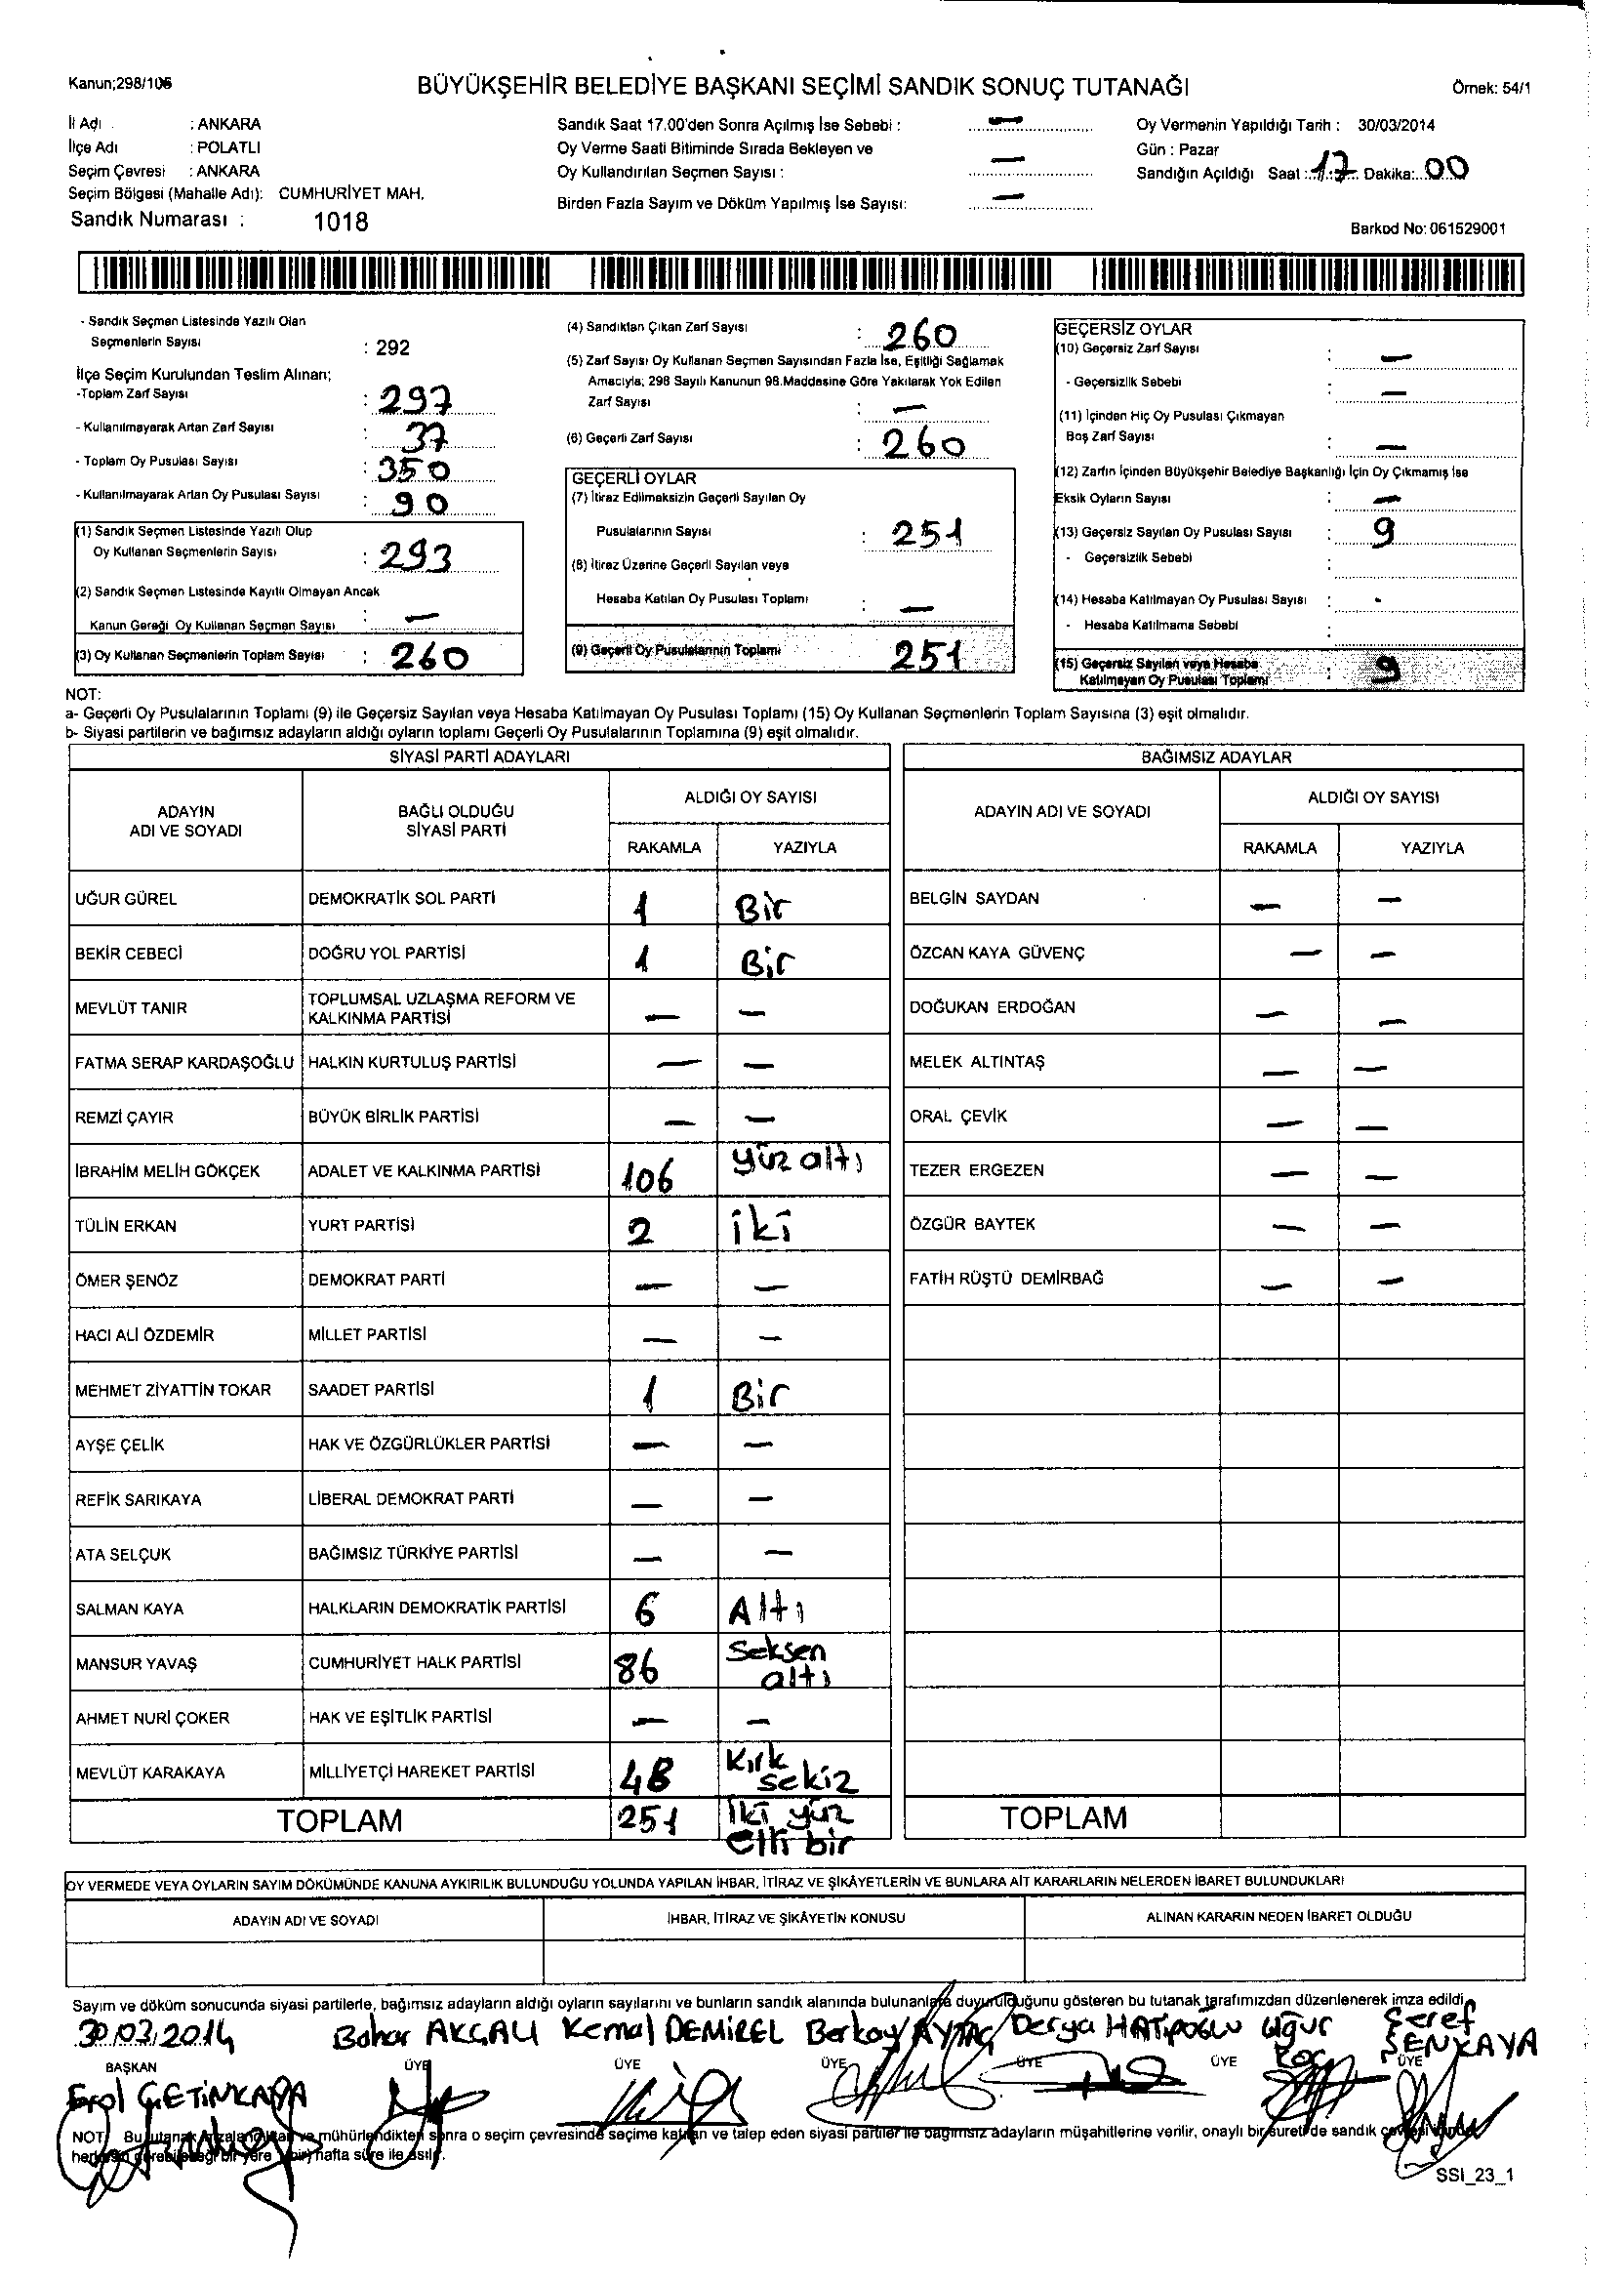 Kanun;298/106
BÜYÜKŞEHİR BELEDİYE BAŞKANI SEÇİMİ SANDIK SONUÇ TUTANAĞI
Örnek: 54/1
İl Adı : ANKARA
İlçe Adı : POLATLI
Seçim Çevresi : ANKARA
Seçim Bölgesi (Mahalle Adı): CUMHURİYET MAH.
Sandık Numarası : 1018
Sandık Saat 17.00'den Sonra Açılmış İse Sebebi : —
Oy Verme Saati Bitiminde Sırada Bekleyen ve
Oy Kullandırılan Seçmen Sayısı : —
Birden Fazla Sayım ve Döküm Yapılmış İse Sayısı: —
Oy Vermenin Yapıldığı Tarih : 30/03/2014
Gün : Pazar
Sandığın Açıldığı Saat : 17 Dakika: 00
Barkod No: 061529001
- Sandık Seçmen Listesinde Yazılı Olan
Seçmenlerin Sayısı : 292
İlçe Seçim Kurulundan Teslim Alınan;
-Toplam Zarf Sayısı : 297
- Kullanılmayarak Artan Zarf Sayısı : 37
- Toplam Oy Pusulası Sayısı : 350
- Kullanılmayarak Artan Oy Pusulası Sayısı : 90
(1) Sandık Seçmen Listesinde Yazılı Olup
Oy Kullanan Seçmenlerin Sayısı : 293
(2) Sandık Seçmen Listesinde Kayıtlı Olmayan Ancak
Kanun Gereği Oy Kullanan Seçmen Sayısı : —
(3) Oy Kullanan Seçmenlerin Toplam Sayısı : 260
(4) Sandıktan Çıkan Zarf Sayısı : 260
(5) Zarf Sayısı Oy Kullanan Seçmen Sayısından Fazla İse, Eşitliği Sağlamak
Amacıyla; 298 Sayılı Kanunun 98.Maddesine Göre Yakılarak Yok Edilen
Zarf Sayısı : —
(6) Geçerli Zarf Sayısı : 260
GEÇERLİ OYLAR
(7) İtiraz Edilmeksizin Geçerli Sayılan Oy
Pusulalarının Sayısı : 251
(8) İtiraz Üzerine Geçerli Sayılan veya
Hesaba Katılan Oy Pusulası Toplamı : —
(9) Geçerli Oy Pusulalarının Toplamı 251
GEÇERSİZ OYLAR
(10) Geçersiz Zarf Sayısı : —
- Geçersizlik Sebebi : —
(11) İçinden Hiç Oy Pusulası Çıkmayan
Boş Zarf Sayısı : —
(12) Zarfın İçinden Büyükşehir Belediye Başkanlığı İçin Oy Çıkmamış İse
Eksik Oyların Sayısı : —
(13) Geçersiz Sayılan Oy Pusulası Sayısı : 9
- Geçersizlik Sebebi :
(14) Hesaba Katılmayan Oy Pusulası Sayısı : -
- Hesaba Katılmama Sebebi :
(15) Geçersiz Sayılan veya Hesaba
Katılmayan Oy Pusulası Toplamı : 9
NOT:
a- Geçerli Oy Pusulalarının Toplamı (9) ile Geçersiz Sayılan veya Hesaba Katılmayan Oy Pusulası Toplamı (15) Oy Kullanan Seçmenlerin Toplam Sayısına (3) eşit olmalıdır.
b- Siyasi partilerin ve bağımsız adayların aldığı oyların toplamı Geçerli Oy Pusulalarının Toplamına (9) eşit olmalıdır.
SİYASİ PARTİ ADAYLARI
ADAYIN ADI VE SOYADI BAĞLI OLDUĞU SİYASİ PARTİ ALDIĞI OY SAYISI
RAKAMLA YAZIYLA
UĞUR GÜREL DEMOKRATİK SOL PARTİ 1 Bir
BEKİR CEBECİ DOĞRU YOL PARTİSİ 1 Bir
MEVLÜT TANIR TOPLUMSAL UZLAŞMA REFORM VE KALKINMA PARTİSİ — —
FATMA SERAP KARDAŞOĞLU HALKIN KURTULUŞ PARTİSİ — —
REMZİ ÇAYIR BÜYÜK BİRLİK PARTİSİ — —
İBRAHİM MELİH GÖKÇEK ADALET VE KALKINMA PARTİSİ 106 yüz altı
TÜLİN ERKAN YURT PARTİSİ 2 iki
ÖMER ŞENÖZ DEMOKRAT PARTİ — —
HACI ALİ ÖZDEMİR MİLLET PARTİSİ — —
MEHMET ZİYATTİN TOKAR SAADET PARTİSİ 1 Bir
AYŞE ÇELİK HAK VE ÖZGÜRLÜKLER PARTİSİ — —
REFİK SARIKAYA LİBERAL DEMOKRAT PARTİ — —
ATA SELÇUK BAĞIMSIZ TÜRKİYE PARTİSİ — —
SALMAN KAYA HALKLARIN DEMOKRATİK PARTİSİ 6 Altı
MANSUR YAVAŞ CUMHURİYET HALK PARTİSİ 86 Seksen altı
AHMET NURİ ÇOKER HAK VE EŞİTLİK PARTİSİ — —
MEVLÜT KARAKAYA MİLLİYETÇİ HAREKET PARTİSİ 48 Kırk sekiz
TOPLAM 251 İki yüz elli bir
BAĞIMSIZ ADAYLAR
ADAYIN ADI VE SOYADI ALDIĞI OY SAYISI
RAKAMLA YAZIYLA
BELGİN SAYDAN — —
ÖZCAN KAYA GÜVENÇ — —
DOĞUKAN ERDOĞAN — —
MELEK ALTINTAŞ — —
ORAL ÇEVİK — —
TEZER ERGEZEN — —
ÖZGÜR BAYTEK — —
FATİH RÜŞTÜ DEMİRBAĞ — —
TOPLAM
OY VERMEDE VEYA OYLARIN SAYIM DÖKÜMÜNDE KANUNA AYKIRILIK BULUNDUĞU YOLUNDA YAPILAN İHBAR, İTİRAZ VE ŞİKÂYETLERİN VE BUNLARA AİT KARARLARIN NELERDEN İBARET BULUNDUKLARI
ADAYIN ADI VE SOYADI İHBAR, İTİRAZ VE ŞİKÂYETİN KONUSU ALINAN KARARIN NEDEN İBARET OLDUĞU
Sayım ve döküm sonucunda siyasi partilerle, bağımsız adayların aldığı oyların sayılarını ve bunların sandık alanında bulunanlara duyurulduğunu gösteren bu tutanak tarafımızdan düzenlenerek imza edildi.
30.03.2014 Bahar AKÇALI Kemal DEMİREL Berkay AYTAÇ Derya HATİPOĞLU Uğur Koç Şeref ŞENKAYA
BAŞKAN ÜYE ÜYE ÜYE ÜYE ÜYE ÜYE
Erol ÇETİNKAYA
NOT: Bu tutanak imzalandıktan ve mühürlendikten sonra o seçim çevresinde seçime katılan ve talep eden siyasi partiler ile bağımsız adayların müşahitlerine verilir, onaylı bir sureti de sandık çevresinde
herkesin görebileceği bir yere (bir) hafta süre ile asılır.
SSI_23_1